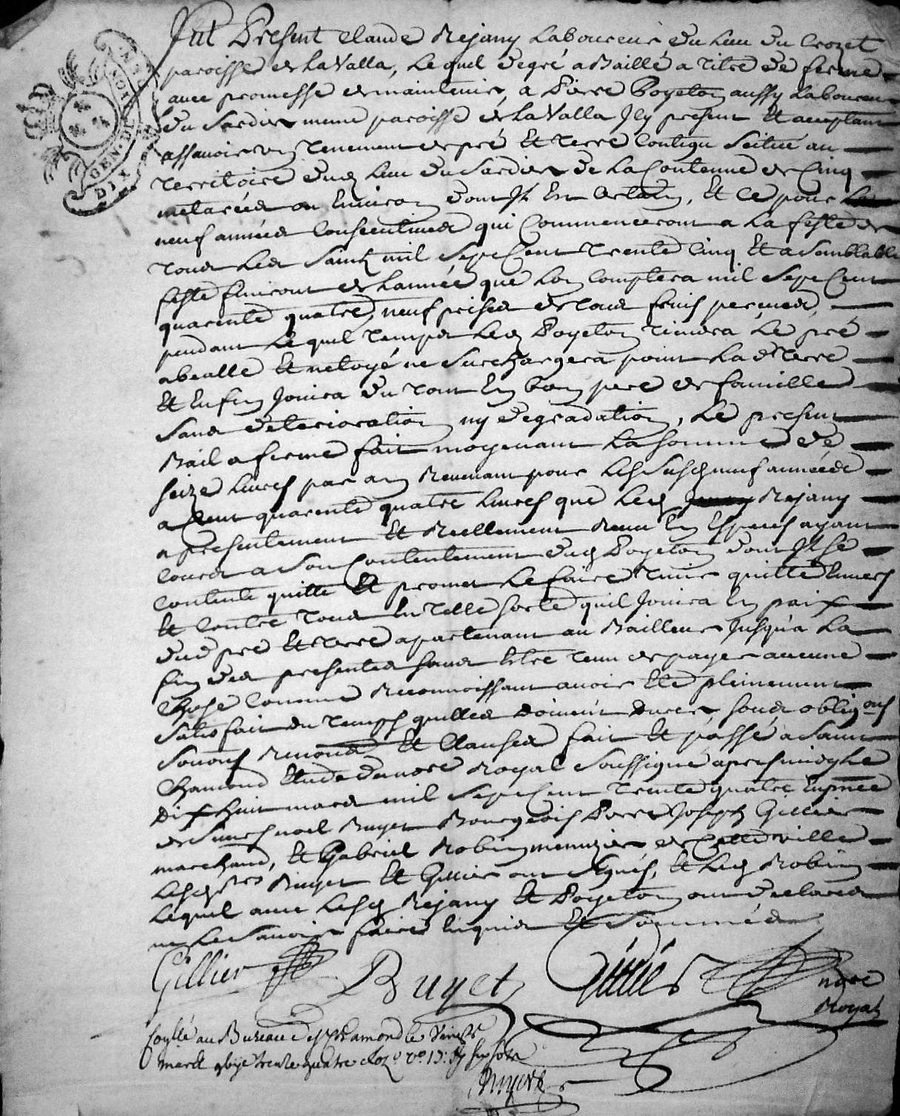 Fut Present Claude Rejany Laboureur du Lieu du Crozet
paroisse de LaValla, Lequel de gré a Baillé a titre de ferme
avec promesse de maintenir, a Pierre Poyeton aussy Laboureur
du Sardier meme paroisse de LaValla Icy present et acceptant
assavoir un tenement de pré et terre contigu scitué au
territoire dud lieu du Sardier de la Contenue de Cinq
metarées ou Environ dont Il Est Certain, Et ce pour
neuf années Consecutives qui Commenceront a La feste de
tous Les Saints mil Sept Cent trente Cinq Et a Semblable
feste finiront de Lannée que Lon Comptera mil Sept Cent
quarente quatre, neuf prises de tous fruis percues,
pendant Lequel temps Led Poyeton tiendra Le pré
abealle Et netoyé ne Surchargera point La de terre
Et Enfin Jouira du tout En bon pere de famille
Sans deterioration ny degradation, Le present
Bail a ferme fait moyenant La Somme de
Seize Livres par an Revenant pour Lesd neuf années
a Cent quarente quatre Livres que Led Rejany
a presentement Et Reellement Receu En Especes ayant
Cours a Son Contentement dud Poyeton dont Il Se
Contente quitte Et promet Le faire tenir quitte Envers
Et Contre tous En telle Sorte quil Jouira En paix
dud pré Et terre apartenant au Bailleur Jusqua La
fin des presentes Sans Estre tenu de payer aucune
Chose Comme Reconnoissant avoir Eté pleinement
Satisfait du temps quelles doivent durer, Sous oblig ons
Soumis Renonce Et Clauses fait Et passé a Saint
Chamond Etude du nore Royal Soussigné apres midy le
dix huit mars mil Sept Cent trente quatre En pnce
de Sieurs noel Buyet Bourgeois Pierre Joseph Gillier
marchand, Et Gabriel Robin menuizier de Cette Ville
Lesd Srs Buyet Et Gillier ont Signés, Et Led Robin
Lequel avec Lesd Rejany Et Poyeton ont declarés
ne Le Savoir faire Enquis Et Sommés
Gillier Buyet
nore
Royal
Collé au Bureau de St Chamond le
mars 1730 trente quatre
GEN. DE LYON
DIX